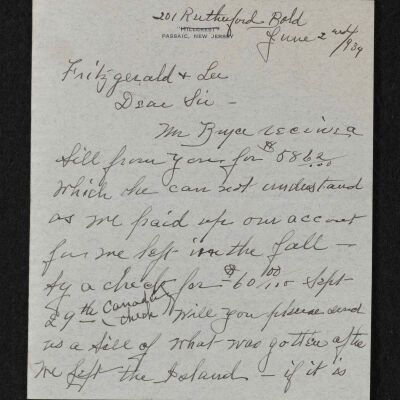 201 Rutherford Bold
HILLCREST
PASSAIC, NEW JERSEY
June 2nd/1939
Fritzgerald + Lee
Dear Sir -
Mr Bryce receives a
bill from you for $58 62/100
which he can not understand
as we paid up our account
for we left in the fall -
by a check for $60 00/100 Sept
29th Canadian check Will you please send
us a bill of what was gotten after
we left the Island - if it is